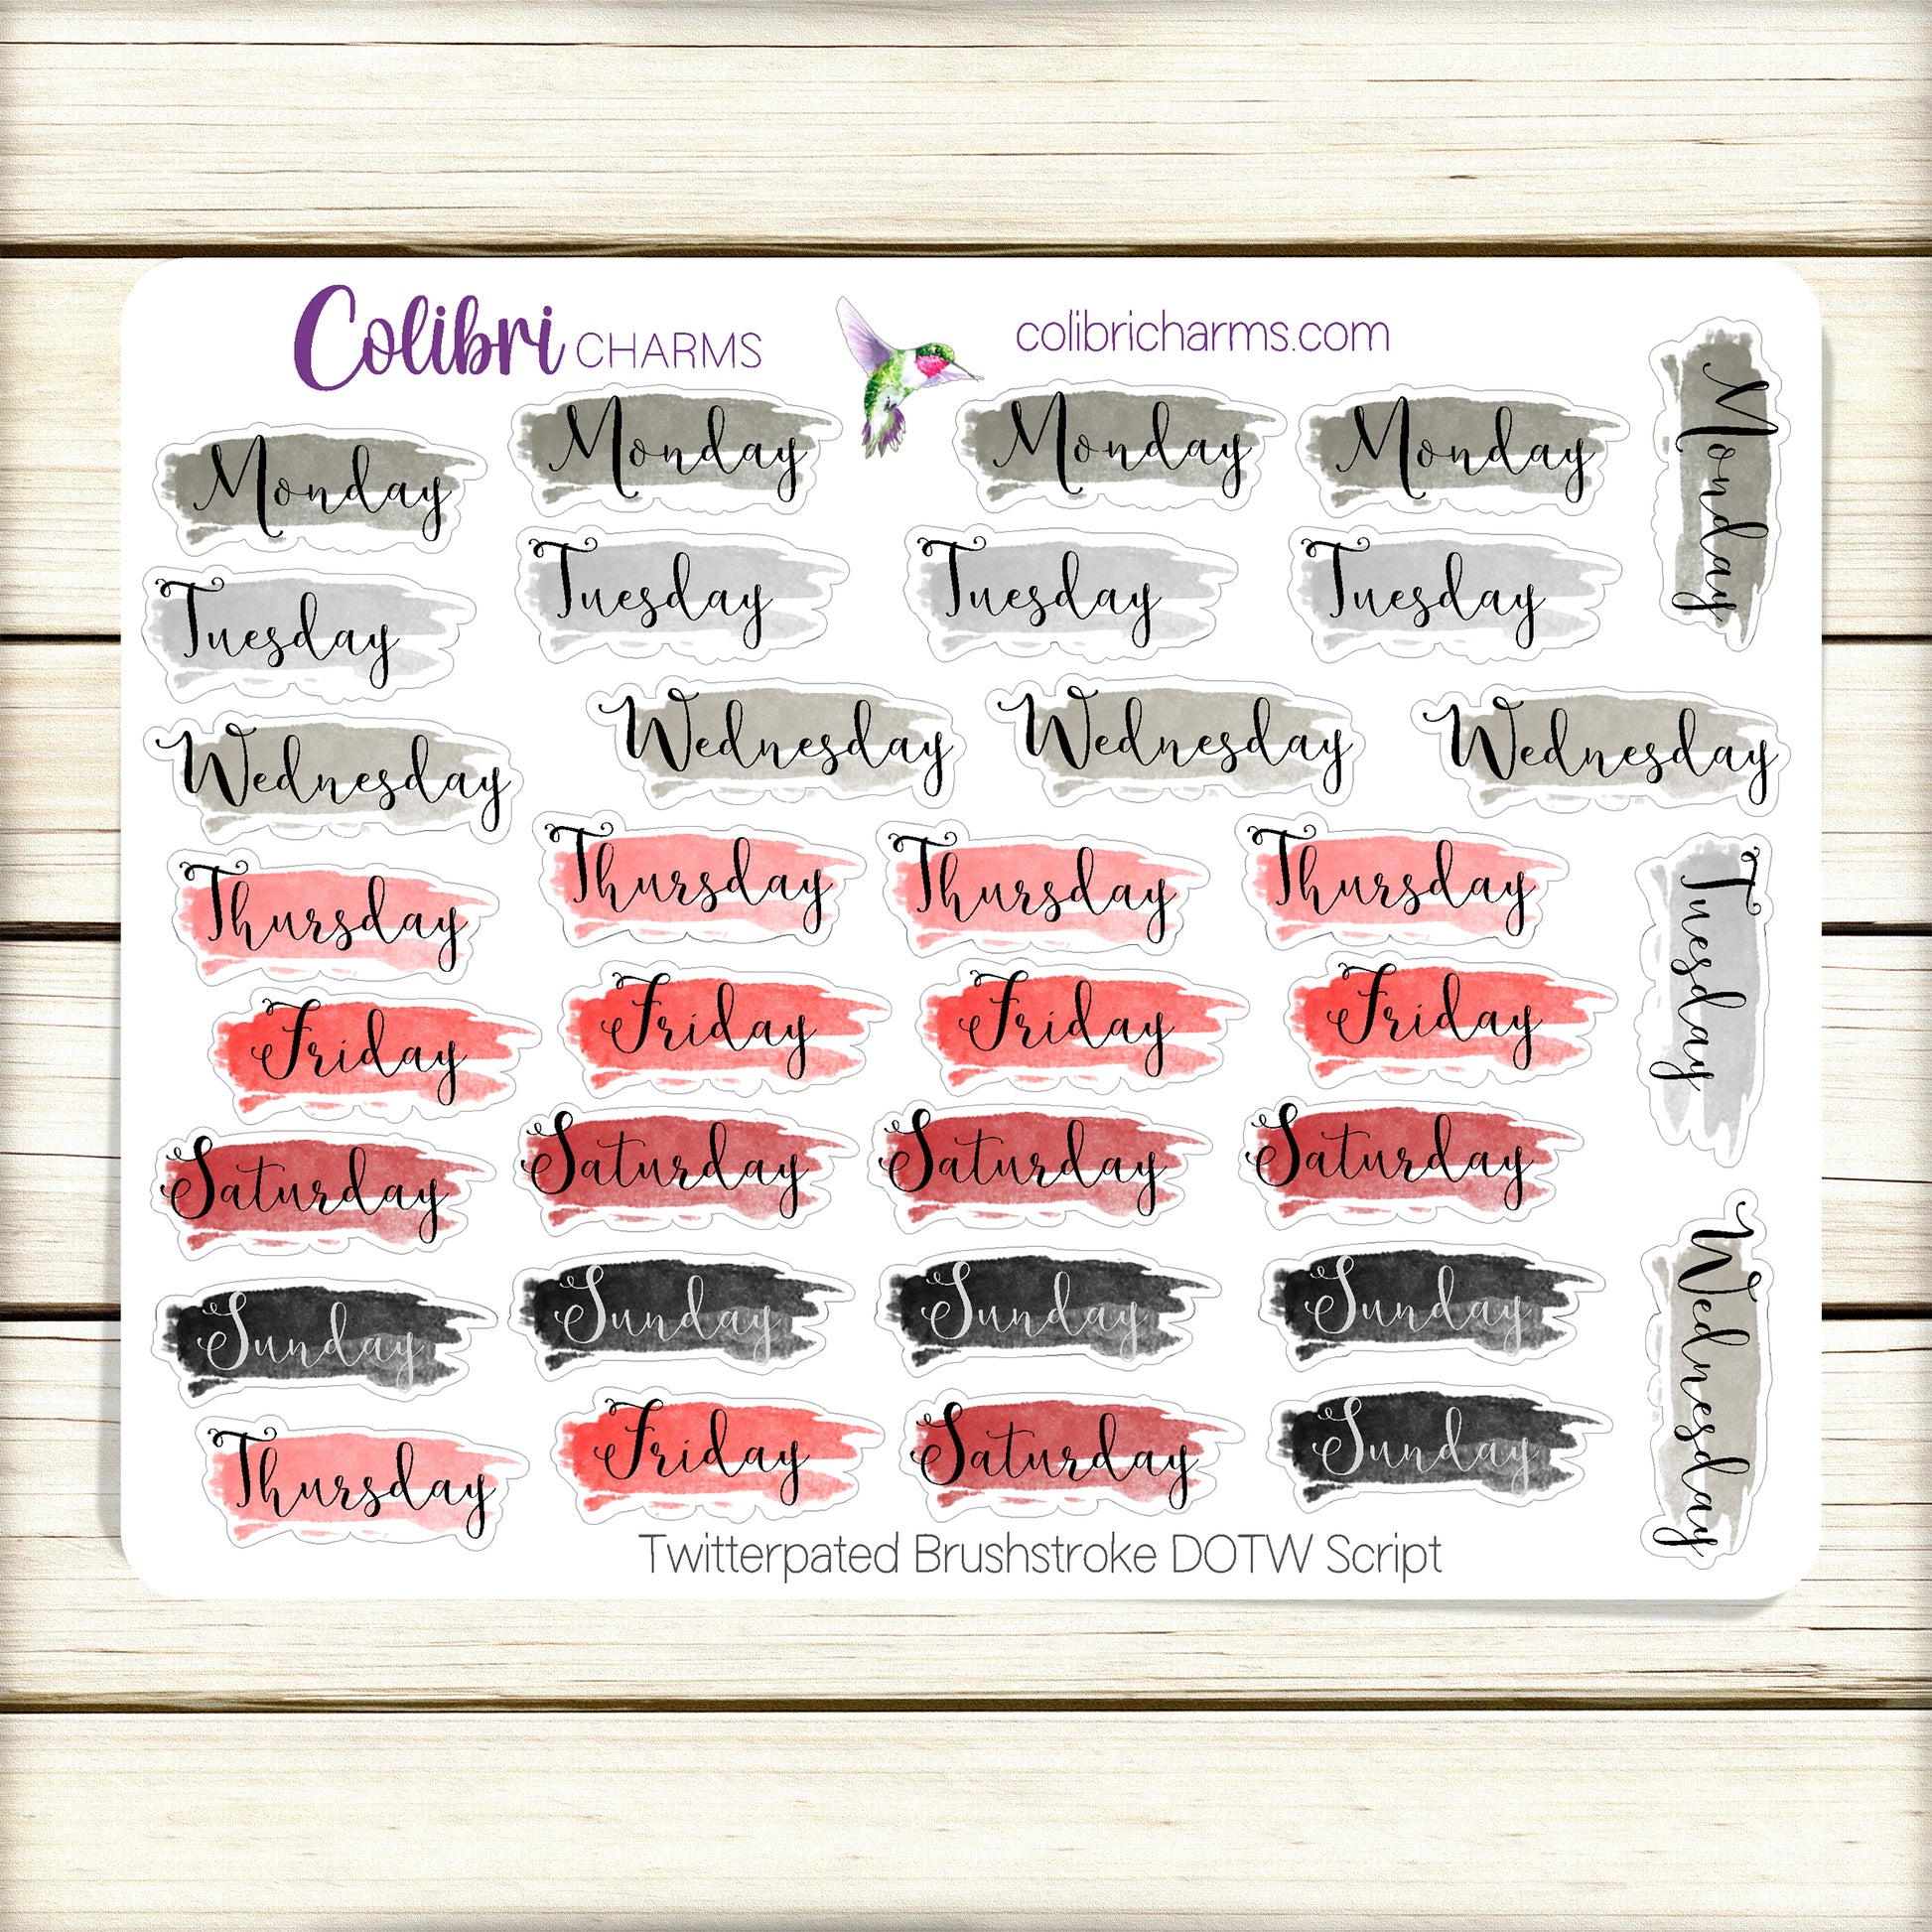 Colibri CHARMS
colibricharms.com
Monday Monday Monday Monday
Tuesday Tuesday Tuesday Tuesday
Wednesday Wednesday Wednesday Wednesday
Thursday Thursday Thursday Thursday
Friday Friday Friday Friday
Saturday Saturday Saturday Saturday
Sunday Sunday Sunday Sunday
Thursday Friday Saturday Sunday
Monday
Tuesday
Wednesday
Twitterpated Brushstroke DOTW Script